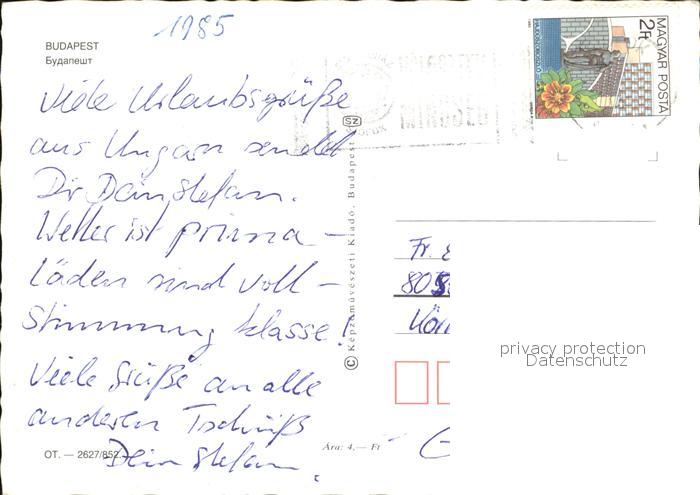 1985
BUDAPEST
Будапешт
Viele Urlaubsgrüße
aus Ungarn sendet
Dir Dein Stefan.
Wetter ist prima –
Läden sind voll –
Stimmung klasse!
Viele Grüße an alle
anderen Tschüß
Dein Stefan.
OT. — 2627/852
Ára: 4,— Ft
© Képzőművészeti Kiadó, Budapest
SZ
2Ft
MAGYAR POSTA
Fr.
805
privacy protection
Datenschutz